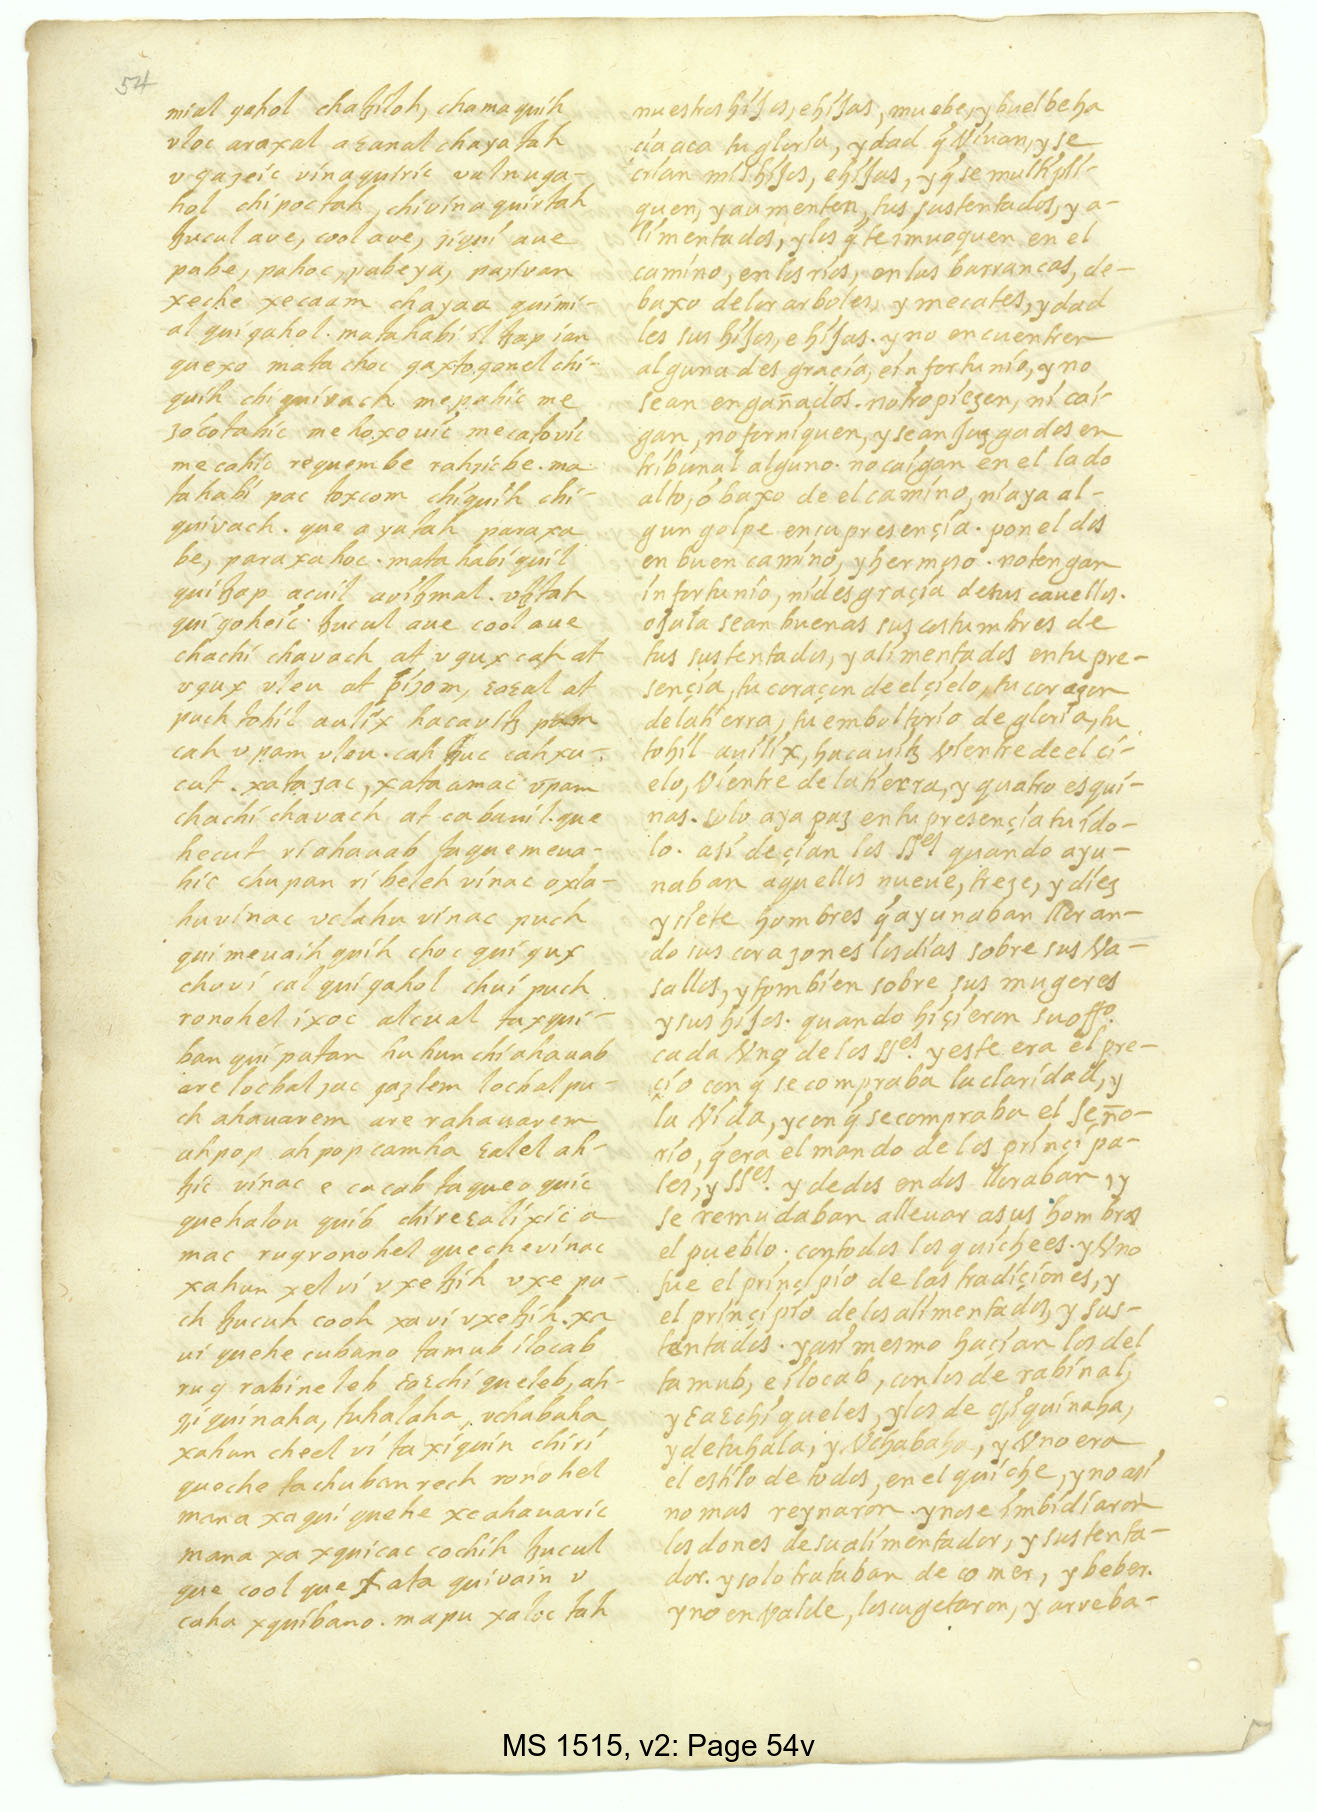 54
mial gahol chaꜩiloh, chamaquih
uloc araxal aɛanal chayatah
u gaɜeic vinaquiric valnuga-
hol chipoctah, chivinaquirtah
ꜩucul aue, cool aue, ziqui aue
pabe, pahoc, pabeya, pazivan
xeche xecaam chayaa quimi-
al quigahol. matahabi il ꜩap ian
quexo mata choc gaxtogonel chi-
quih chiquivach mepahic me
ɜocotahic mehoxouic mecatouic
mecahic requembe rahzicbe. ma
tahabi pac toxcom chiquih chi-
quivach. que a yatah paraxa
be, paraxahoc. matahabi quil
quiꜩap acuil auiꜩmal. uꜩtah
quigoheic. ꜩucul aue cool aue
chachi chavach at ugux cah at
ugux uleu at piɜom, ɛaɛal at
puch tohil auilix hacauitz pam
cah upam uleu. cah ꜩuc cahxu-
cut. xataɜac, xataamac upam
chachi chavach at cabauil. que
hecut ri ahauab taquemeua-
hic chupan ri beleh vinac oxla-
huvinac uclahu vinac puch
quimeuaih quih choc quigux
chovi calquigahol chui puch
ronohel ixoc alcual taxqui-
ban quipatan huhun chi ahauab
are locbalɜac gazlem locbalpu-
ch ahauarem are rahauarem
ahpop ahpopcamha ɛalel ah-
ꜩic vinac e cacab taqueoquic
quehalou quib chireɛalixic a
mac rug ronohel quechevinac
xahun xel vi uxeꜩih uxe pu-
ch ꜩucuh cooh xavi uxeꜩih. xa
ui quehe cubano tamub ilocab
rug rabineleb ɛaɛchiqueleb, ah-
ziquinaha, tuhalaha, uchabaha
xahun cheel vi taxiquin chiri
queche tachubanrech ronohel
mana xaqui quehe xeahauaric
mana xa xquicac cochih ꜩucul
que cool que xata quivain u
caha xquibano. mapu xaloc tah
nuestros hijos, e hijas, muebe, y buelbe ha
cia aca tu gloria, y dad q̃ vivan, y se
crian mis hijos, e hijas, y q̃ se multipli-
quen, y aumenten, tus sustentados, y a-
limentados, y los q̃ te imvoquen en el
camino, en los rios, en las barrancas, de-
baxo de los arboles, y mecates, y dad
les sus hijos, e hijas. y no encuentren
alguna des gracia, e infortunio, y no
sean engañados. no tropiezen, ni cai-
gan, no forniquen, y sean juzgados en
tribunal alguno. no caigan en el lado
alto, ó baxo de el camino, ni aya al-
gun golpe en su presençia. ponel dos
en buen camino, y hermoso. no tengan
infortunio, ni desgraçia de tus cauellos.
ojala sean buenas sus costumbres de
tus sustentados, y alimentados en tu pre-
sençia, tu coraçon de el çielo, tu coraçon
de la tierra, tu emboltorio de gloria, tu
tohil auilix, hacauitz vientre de el çi-
elo, vientre de la tierra, y quatro esqui-
nas. solo aya paz en tu presençia tu ido-
lo. asi deçian los SSes quando ayu-
naban aquellos nueve, treze, y diez
y siete hombres q̃ ayunaban lloran-
do sus corazones los dias sobre sus va-
sallos, y tombien sobre sus mugeres
y sus hijos. quando hiçieron su offo.
cada vno de los SSes. y este era el pre-
çio con q̃ se compraba la claridad, y
la vida, y con q̃ se compraba el seño-
rio, q̃ era el mando de los prinçipa-
les, y SSes. y de dos en dos lloraban, y
se remudaban a llevar a sus hombros
el pueblo. con todos los quichees. y vno
fue el prinçipio de las tradiçiones, y
el prinçipio de los alimentados, y sus-
tentados. y asi mesmo haçian los del
tamub, e ilocab, con los de rabinal,
y ɛaɛchiqueles, y los de ziquinaha,
y de tuhala, y vchabaha, y vno era
el estilo de todos, en el quiche, y no asi
no mas reynaron. y no se imbidiaron
los dones de su alimentador, y sustenta-
dor. y solo trataban de comer, y beber.
y no en valde, los cugetaron, y arreba-
MS 1515, v2: Page 54v